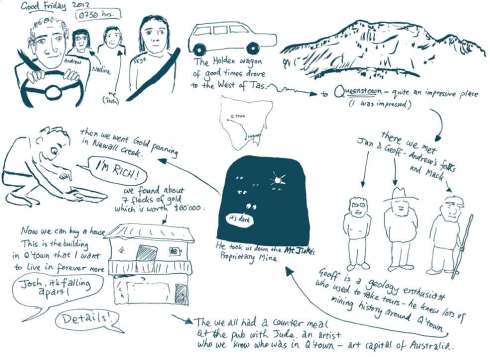 Good Friday 2012
0730 hrs.
Andrew
Nadine
me
The Holden wagon
of good times drove
to the West of Tas.
to Queenstown - quite an impressive place
(I was impressed)
there we met
Jan & Geoff - Andrew's folks
and Mack
Geoff is a geology enthusiast
who used to take tours - he knew lots of
mining history around Q'town
it's dark
He took us down the Mt Jukes
Proprietary Mine
then we went Gold panning
in Newall Creek.
I'M RICH!
we found about
7 flecks of gold
which is worth
Now we can buy a house
This is the building
in Q'town that I want
to live in forever more
Josh, it's falling
apart!
Details!
The we all had a counter meal
at the pub with Jude, an artist
who we knew who was in Q'town - art capital of Australia.